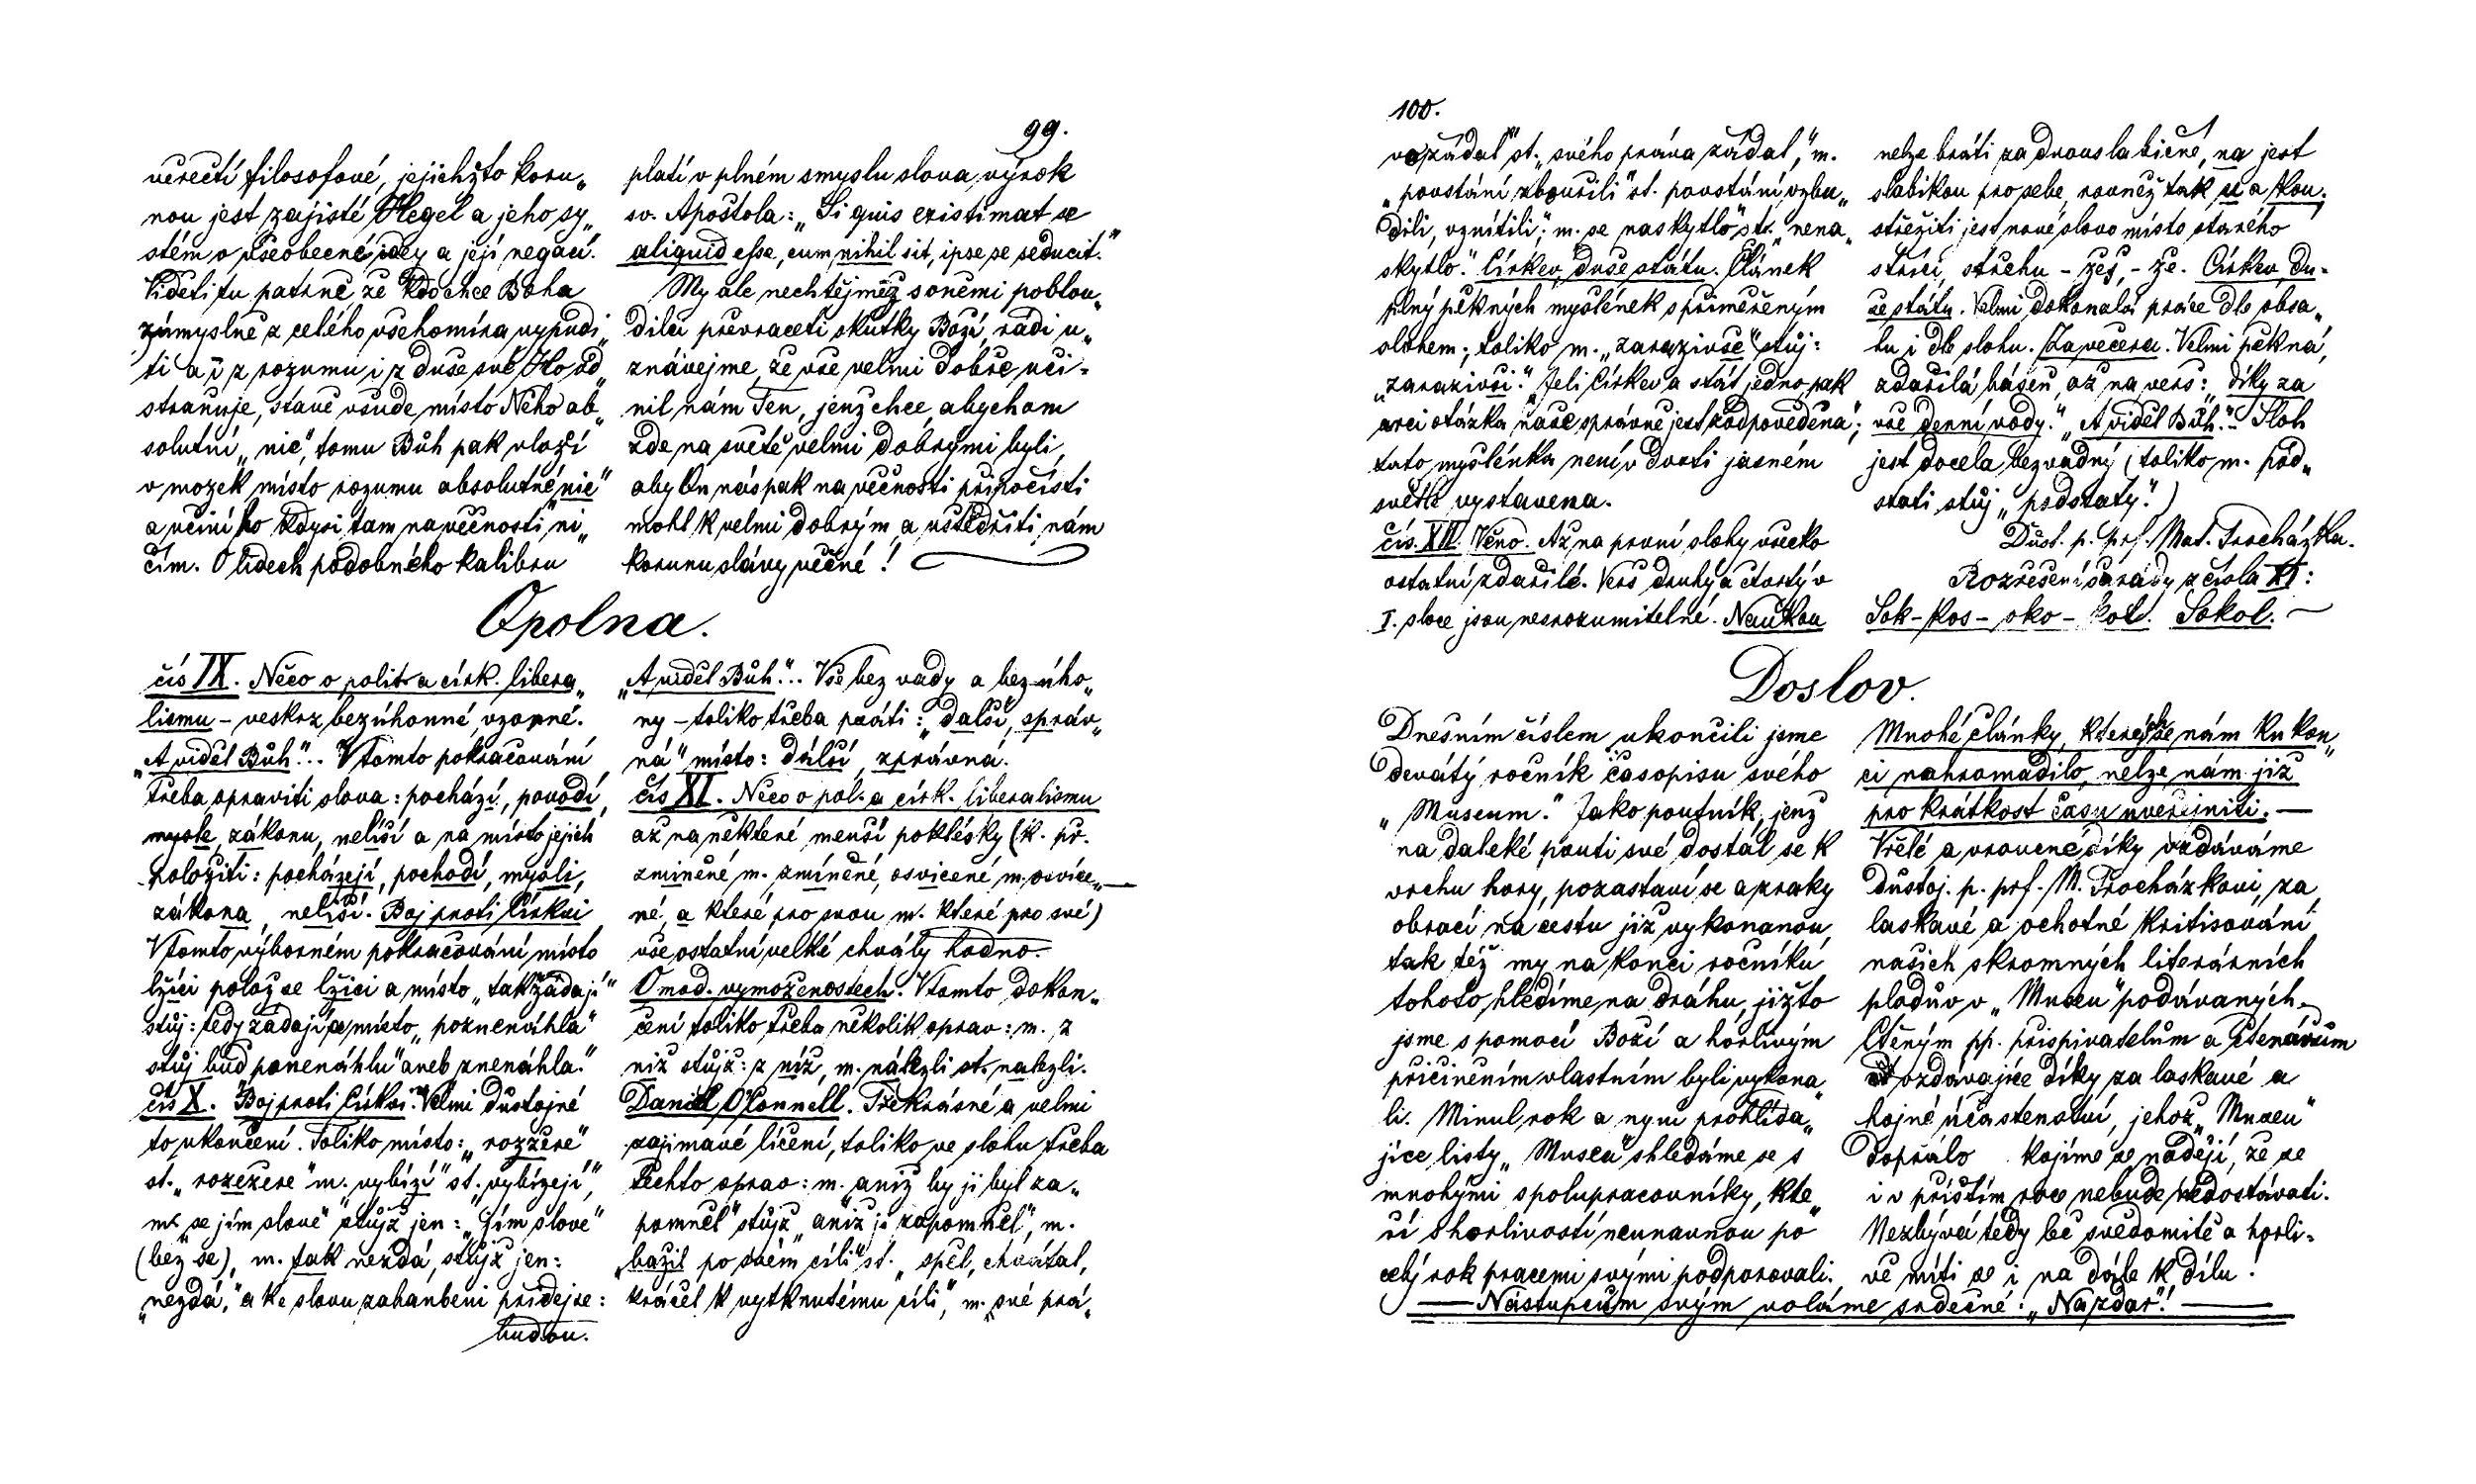 99.
verečtí filosofové, jejichžto koru„
nou jest zajisté Hegel a jeho sy„
stém o všeobecné idey a její negaci.
Viděti tu patrně, že kdo chce Boha
zúmyslně z celého všehomíra vypudi„
ti a i z rozumu i z duše své Ho od„
straňuje, stavě všude místo Něho ab„
solutní „nic“, tomu Bůh pak vloží
v mozek místo rozumu absolutné „nic“
a učiní ho kdysi tam na věčnosti „ni„
čím. O lidech podobného kalibru
platí v plném smyslu slova výrok
sv. Apoštola: „Si quis existimat se
aliquid esse, cum nihil sit, ipse se seducit.“
My ale nechtějmež s oněmi poblou„
dilci převraceti skutky Boží, rádi u„
znávejme, že vše velmi dobře uči-
nil nám Ten, jenž chce, abychom
zde na světě velmi dobrými byli,
aby On nás pak na věčnosti připočísti
mohl k velmi dobrým a uštědřiti nám
korunu slávy věčné!
Opolna.
čís IX. Něco o polit. a círk. libera„
lismu – veskrz bezúhonné, vzorné.
„A viděl Bůh“... V tomto pokračování
třeba opraviti slova: pochází, povodí,
mysle, zákonu, nelíší a na místo jejich
položiti: pocházejí, pochodí, mysli,
zákona, neliší. Boj proti Církvi
V tomto výborném pokračování místo
lžíci polož se lžici a místo „takžádají“
stůj: tedy žádají a místo „poznenáhla“
stůj buď ponenáhlu“ aneb znenáhla.“
čís X. Boj proti Církvi. Velmi důstojné
to ukončení. Toliko místo: „rozžere“
st. „rozežere“ m. vybízí“ st. „vybízejí“,
m. „se jím slove“ stůjž jen: „jím slove“
(bez se), m. tak nezdá, stůjž jen:
„nezdá,“ a ke slovu zahanbeni přidejže:
budou.
„A viděl Bůh“... Vše bez vady a bezúho„
ny – toliko třeba psáti: „další, správ„
ná“ místo: dálší, zprávná.
čís XI. Něco o pol. a círk. liberalismu
až na některé menší poklésky (k. př.
zminěné m. zmíněné, osvicené m. osvíce„
né, a které pro svou m. které pro své)
vše ostatní velké chvály hodno.
O mod. vymoženostech. V tomto dokon„
čení toliko třeba několik oprav: m. z
niž stůjž: z níž, m. nálezli st. nalezli.
Daniel O'Connell. Překrásné a velmi
zajimavé líčení, toliko ve slohu třeba
těchto oprav: m. aniž by ji byl za„
pomněl“ stůjž „aniž ji zapomněl“, m.
„bažil po svém cíli“ st. „spěl, chvátal,
kráčel k vytknutému cíli“, m. „své prá„
100.
vo žádal“ st. „svého práva žádal,“ m.
„povstání zbouřili“ st. povstání vzbu„
dili, vznítili,“ m. se naskytlo“ st. „nena„
skytlo.“ Církev, duše státu. Článek
plný pěkných myšlének s přiměřeným
slohem; toliko m. „zarazivše“ stůj:
„zarazivši.“ „Jeli Církev a stát jedno, pak
arci otázka naše správně jest zodpověděna“;
tato myšlénka není v dosti jasném
světle vystavena.
čís. XII. Věno. Až na první slohy všecko
ostatní zdařilé. Verš druhý a čtvrtý v
I. sloce jsou nesrozumitelné. Naukou
nelze bráti za dvouslabičné, na jest
slabikou pro sebe, rovněž tak u a kou.
střežiti jest nové slovo místo starého
stříci, střehu – žeš, – že. Církev du-
še státu. Velmi dokonalá práce dle obsa„
hu i dle slohu. Za večera. Velmi pěkná,
zdařilá báseň, až na verš: „díky za
vše denní vody.“ „A viděl Bůh.“ – Sloh
jest docela bezvadný (toliko m. pod„
stati stůj „podstaty.“)
Důst. p. prf. Mat. Procházka.
Rozřešení šarády z čísla XI:
Sok – kos – oko – kol. Sokol.
Doslov.
Dnešním číslem ukončili jsme
devátý ročník časopisu svého
„Museum.“ Jako poutník, jenž
na daleké pouti své dostal se k
vrchu hory, pozastaví se a zraky
obrací na cestu již vykonanou,
tak též my na konci ročníku
tohoto hledíme na dráhu, jižto
jsme s pomocí Boží a horlivým
přičiněním vlastním byli vykona„
li. Minul rok a nyní prohlída„
jíce listy „Musea“ shledáme se s
mnohými spolupracovníky, kte„
ří s horlivostí neunavnou po
celý rok pracemi svými podporovali.
Mnohé články, kterých se nám ku kon„
ci nahromadilo, nelze nám již
pro krátkost času uveřejniti. –
Vřelé a vroucné díky vzdáváme
důstoj. p. prf. M. Procházkovi, za
laskavé a ochotné kritisování
našich skromných literárních
plodův v „Museu“ podávaných.
Ctěným pp. přispivatelům a čtenářům
vzdávajíce díky za laskavé a
hojné účastenství, jehož „Museu“
dopřálo kojíme se nadějí, že se
i v příštím roce nebude nedostávati.
Nezbývá tedy leč svědomitě a horli-
vě míti se i na dále k dílu!
Nástupcům svým voláme srdečné: „Na zdar“!